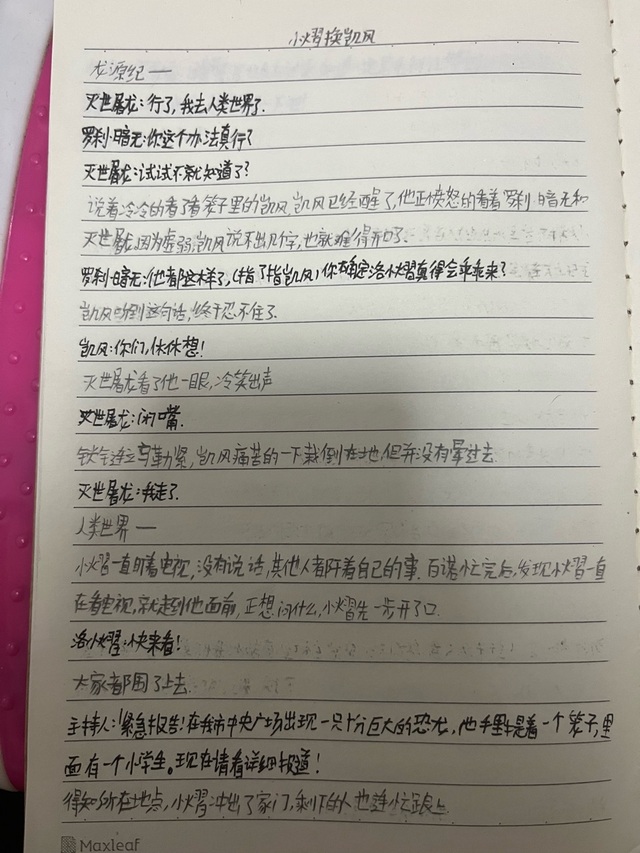 小熠换凯风
龙源纪一
灭世屠龙：行了，我去人类世界了.
罗刹·暗无：你这个办法真行？
灭世屠龙：试试不就知道了？
说着冷冷的看了看笼子里的凯风，凯风已经醒了，他正愤怒的看着罗刹·暗无和
灭世屠龙，因为虚弱，凯风说不出几个字，也就难得开口了.
罗刹·暗无：他都这样了，(指了指凯风)你确定洛小熠真得会乖乖来？
凯风听到这句话，终于忍不住了.
凯风：你们，休休想！
灭世屠龙看了他一眼，冷笑出声
灭世屠龙：闭嘴.
铁链立马勒紧，凯风痛苦的一下栽倒在地，但并没有晕过去.
灭世屠龙：我走了.
人类世界一
小熠一直盯着电视，没有说话，其他人都忙着自己的事.百诺忙完后，发现小熠一直
在看电视，就走到他面前，正想问什么，小熠先一步开了口.
洛小熠：快来看！
大家都围了上去.
主持人：！紧急报告！在我市中央广场出现一只十分巨大的恐龙，他手里提着一个笼子，里
面有一个小学生。现在请看详细报道！
得知所在地点，小熠冲出了家门，剩下的人也连忙跟上
Maxleaf